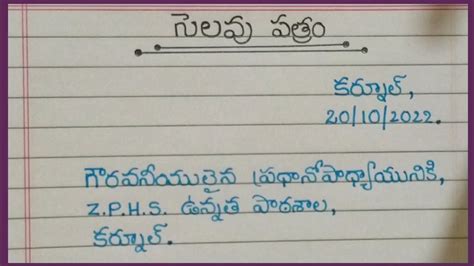 సెలవు పత్రం
కర్నూల్,
20/10/2022.
గౌరవనీయులైన ప్రధానోపాధ్యాయునికి,
Z.P.H.S. ఉన్నత పాఠశాల,
కర్నూల్.